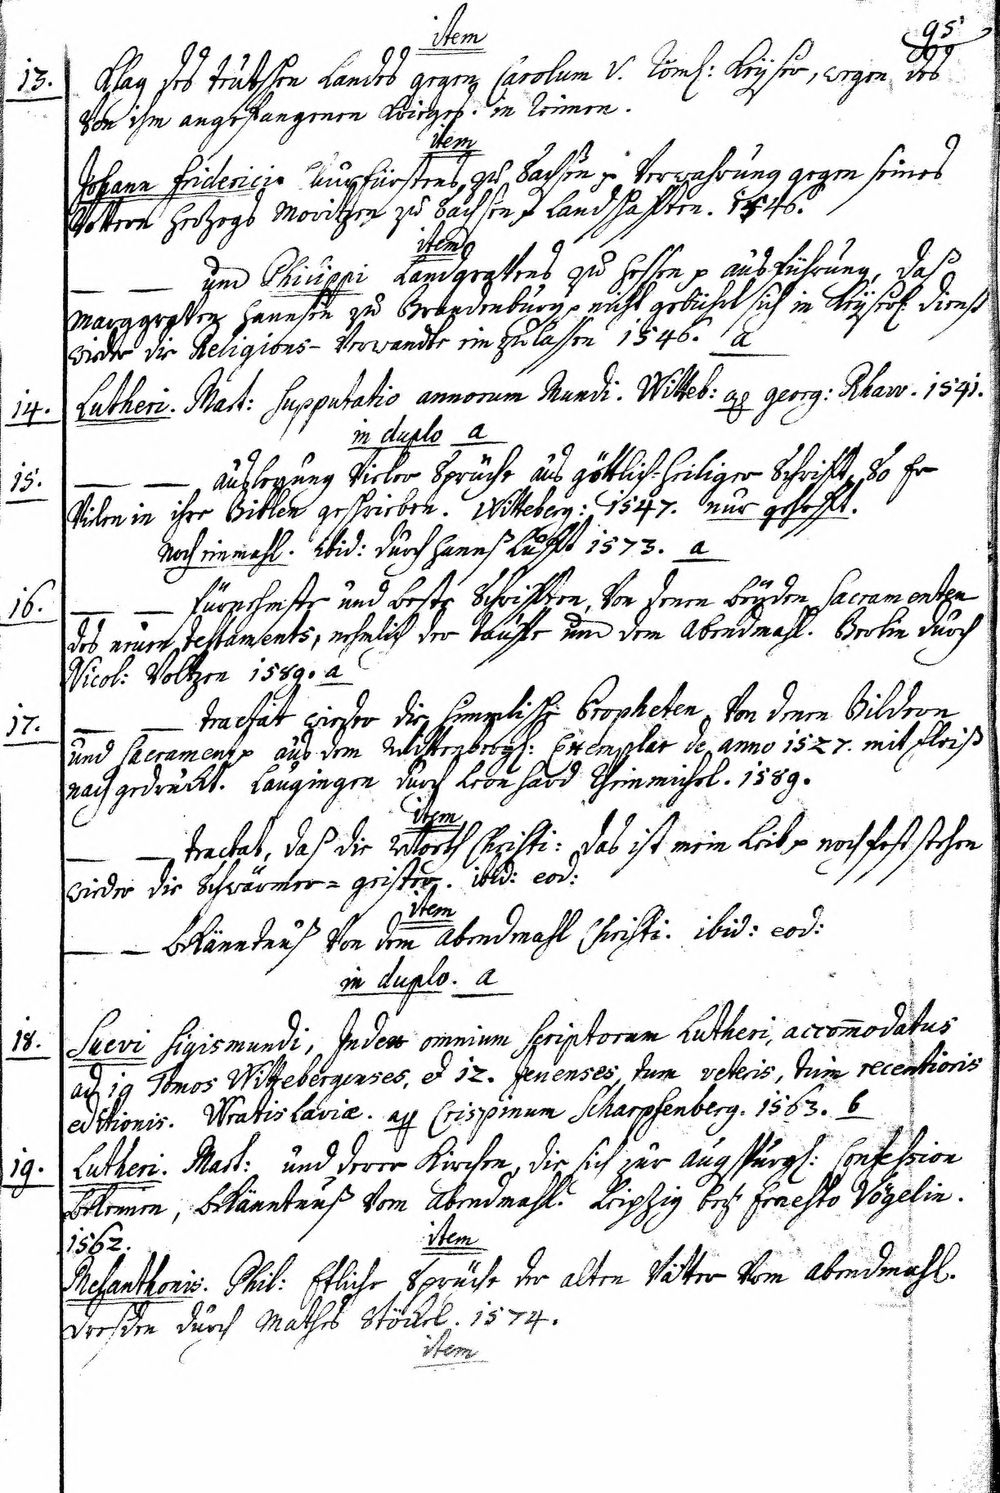 95
item
13. Klag des teutschen Landes gegen Carolum V. Röm: Keyser, wegen des
Von ihm angefangenen Krieges. in Reimen.
item
Johann Friderici. Churfürstens zu Sachsen p Verwahrung gegen seines
Vettern Hertzogs Moritzen zu Sachsen p Landschafften. 1546.
item
— — und Philippi Landgraffens zu Hessen p Ausführung, daß
Marggraffen Hannsen zu Brandenburg p nicht gebührt sich in Keyserl: dienst
wieder die Religions-Verwandte einzulassen 1546. a
14. Lutheri. Mart: Supputatio annorum Mundi. Witteb: ap georg: Rhaw. 1541.
in duplo a
15. — — Auslegung Vieler Sprüche aus göttlich-heiliger Schrifft, So Er
Vielen in ihre Biblen geschrieben. Witteberg: 1547. nur gehefft.
Noch einmahl. ibid: durch Hannß Lufft 1573. a
16. — — fürnehmste und beste Schrifften, Von denen beyden Sacramenten
des neuen testaments, nehmlich der Tauffe und dem Abendmahl. Berlin durch
Nicol: Voltzen 1589. a
17. — — tractat wieder die himmlische Propheten, Von denen Bildern
und Sacrament p aus dem Wittenbergis: Exemplar de anno 1527. mit fleiß
nachgedruckt. Laugingen durch Leonhard Rheinmichel. 1589.
item
— — tractat, daß die Worth Christi: das ist mein Leib p noch fest stehen
wieder die Schwärmer=geister. ibid: eod:
item
— — Bekänntnuß Von dem Abendmahl Christi. ibid: eod:
in duplo. a
18. Suevi Sigismundi, Index omnium scriptorum Lutheri, accom̄odatus
ad 19 Tomos Wittebergenses, et 12. Jenenses, tum veteris, tum recentioris
editionis. Wratislaviæ. ap Crispinum Scharpfenberg. 1563. 6
19. Lutheri. Mart: und derer Kirchen, die sich zur Augspurgl: Confession
bekennen, Bekänntnuß Vom Abendmahl. Leipzig bey Ernesto Vögelin.
1562.
item
Melanthonis. Phil: Etliche Sprüche der alten Vätter Vom Abendmahl.
Dresden durch Mathes Stöckel. 1574.
item